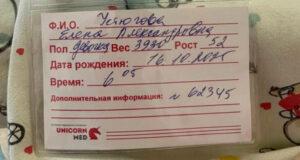 Ф.И.О. Устюгова
Елена Александровна
Пол девочка Вес 3930 Рост 52
Дата рождения: 16.10.2025
Время: 6 05
Дополнительная информация: n 62345
UNICORN
MED